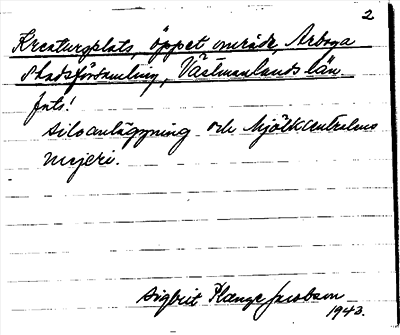 2
Kreatursplats, öppet område, Arboga
Stadsförsamling, Västmanlands län.
Siloanläggning och Mjölkcentralens
mejeri.
Sigbrit Plænge Jacobson
1943.